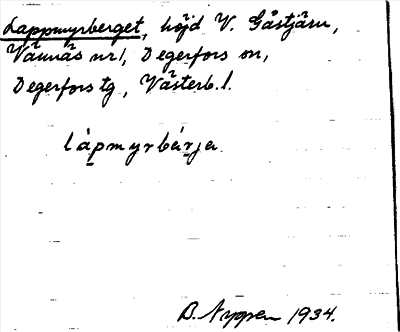 Lappmyrberget, höjd V. Gåstjärn,
Vännäs nr 1, Degerfors sn,
Degerfors tg, Västerb. l.
lápmyrbárja
B. Nygren 1934.